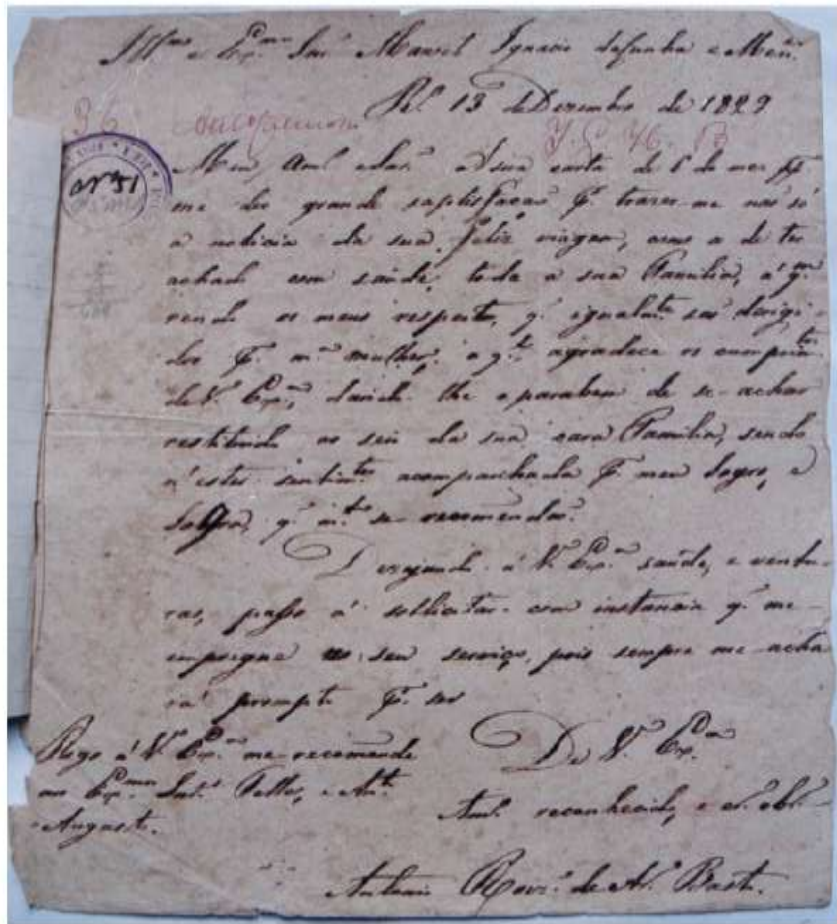 Ill.mo e Ex.mo Snr. Manoel Ignacio da Cunha e Men.
Rel. 13 de Dezembro de 1829
36
Y. G. 46. B
nº 51
Meu Am.o e Sn.r A sua carta de 6 do mez pp
me deo grande satisfacaõ p.r trazer-me naõ só
a noticia da sua feliz viagem, como a de ter
achado com saude, toda a sua Familia, a q.m
rendo os meus respeitos, q. igualm.te saõ dirigi-
dos p.r m.a mulher, a q.l agradece os cumprim.tos
de V. Ex.a, dando-lhe o parabem de se-achar
restituido ao seio da sua cara Familia, sendo
n'estes sentim.tos acompanhada p.r meu Sogro, e
Sogra, q. m.to se recomendaõ.
Dezejando á V. Ex.a saude, e ventu-
ras, passo á sollicitar com instancia q. me-
empregue no seu serviço, pois sempre me acha
rá prompto p.a ser
De V. Ex.a
Rogo á V. Ex.a me-recomende
aos Ex.mos Snr.s Felles, e Ant.o
Augusto.
Am.o reconhecido, e cr. obr.
Antonio Rodr.s de Ar.o Basto.